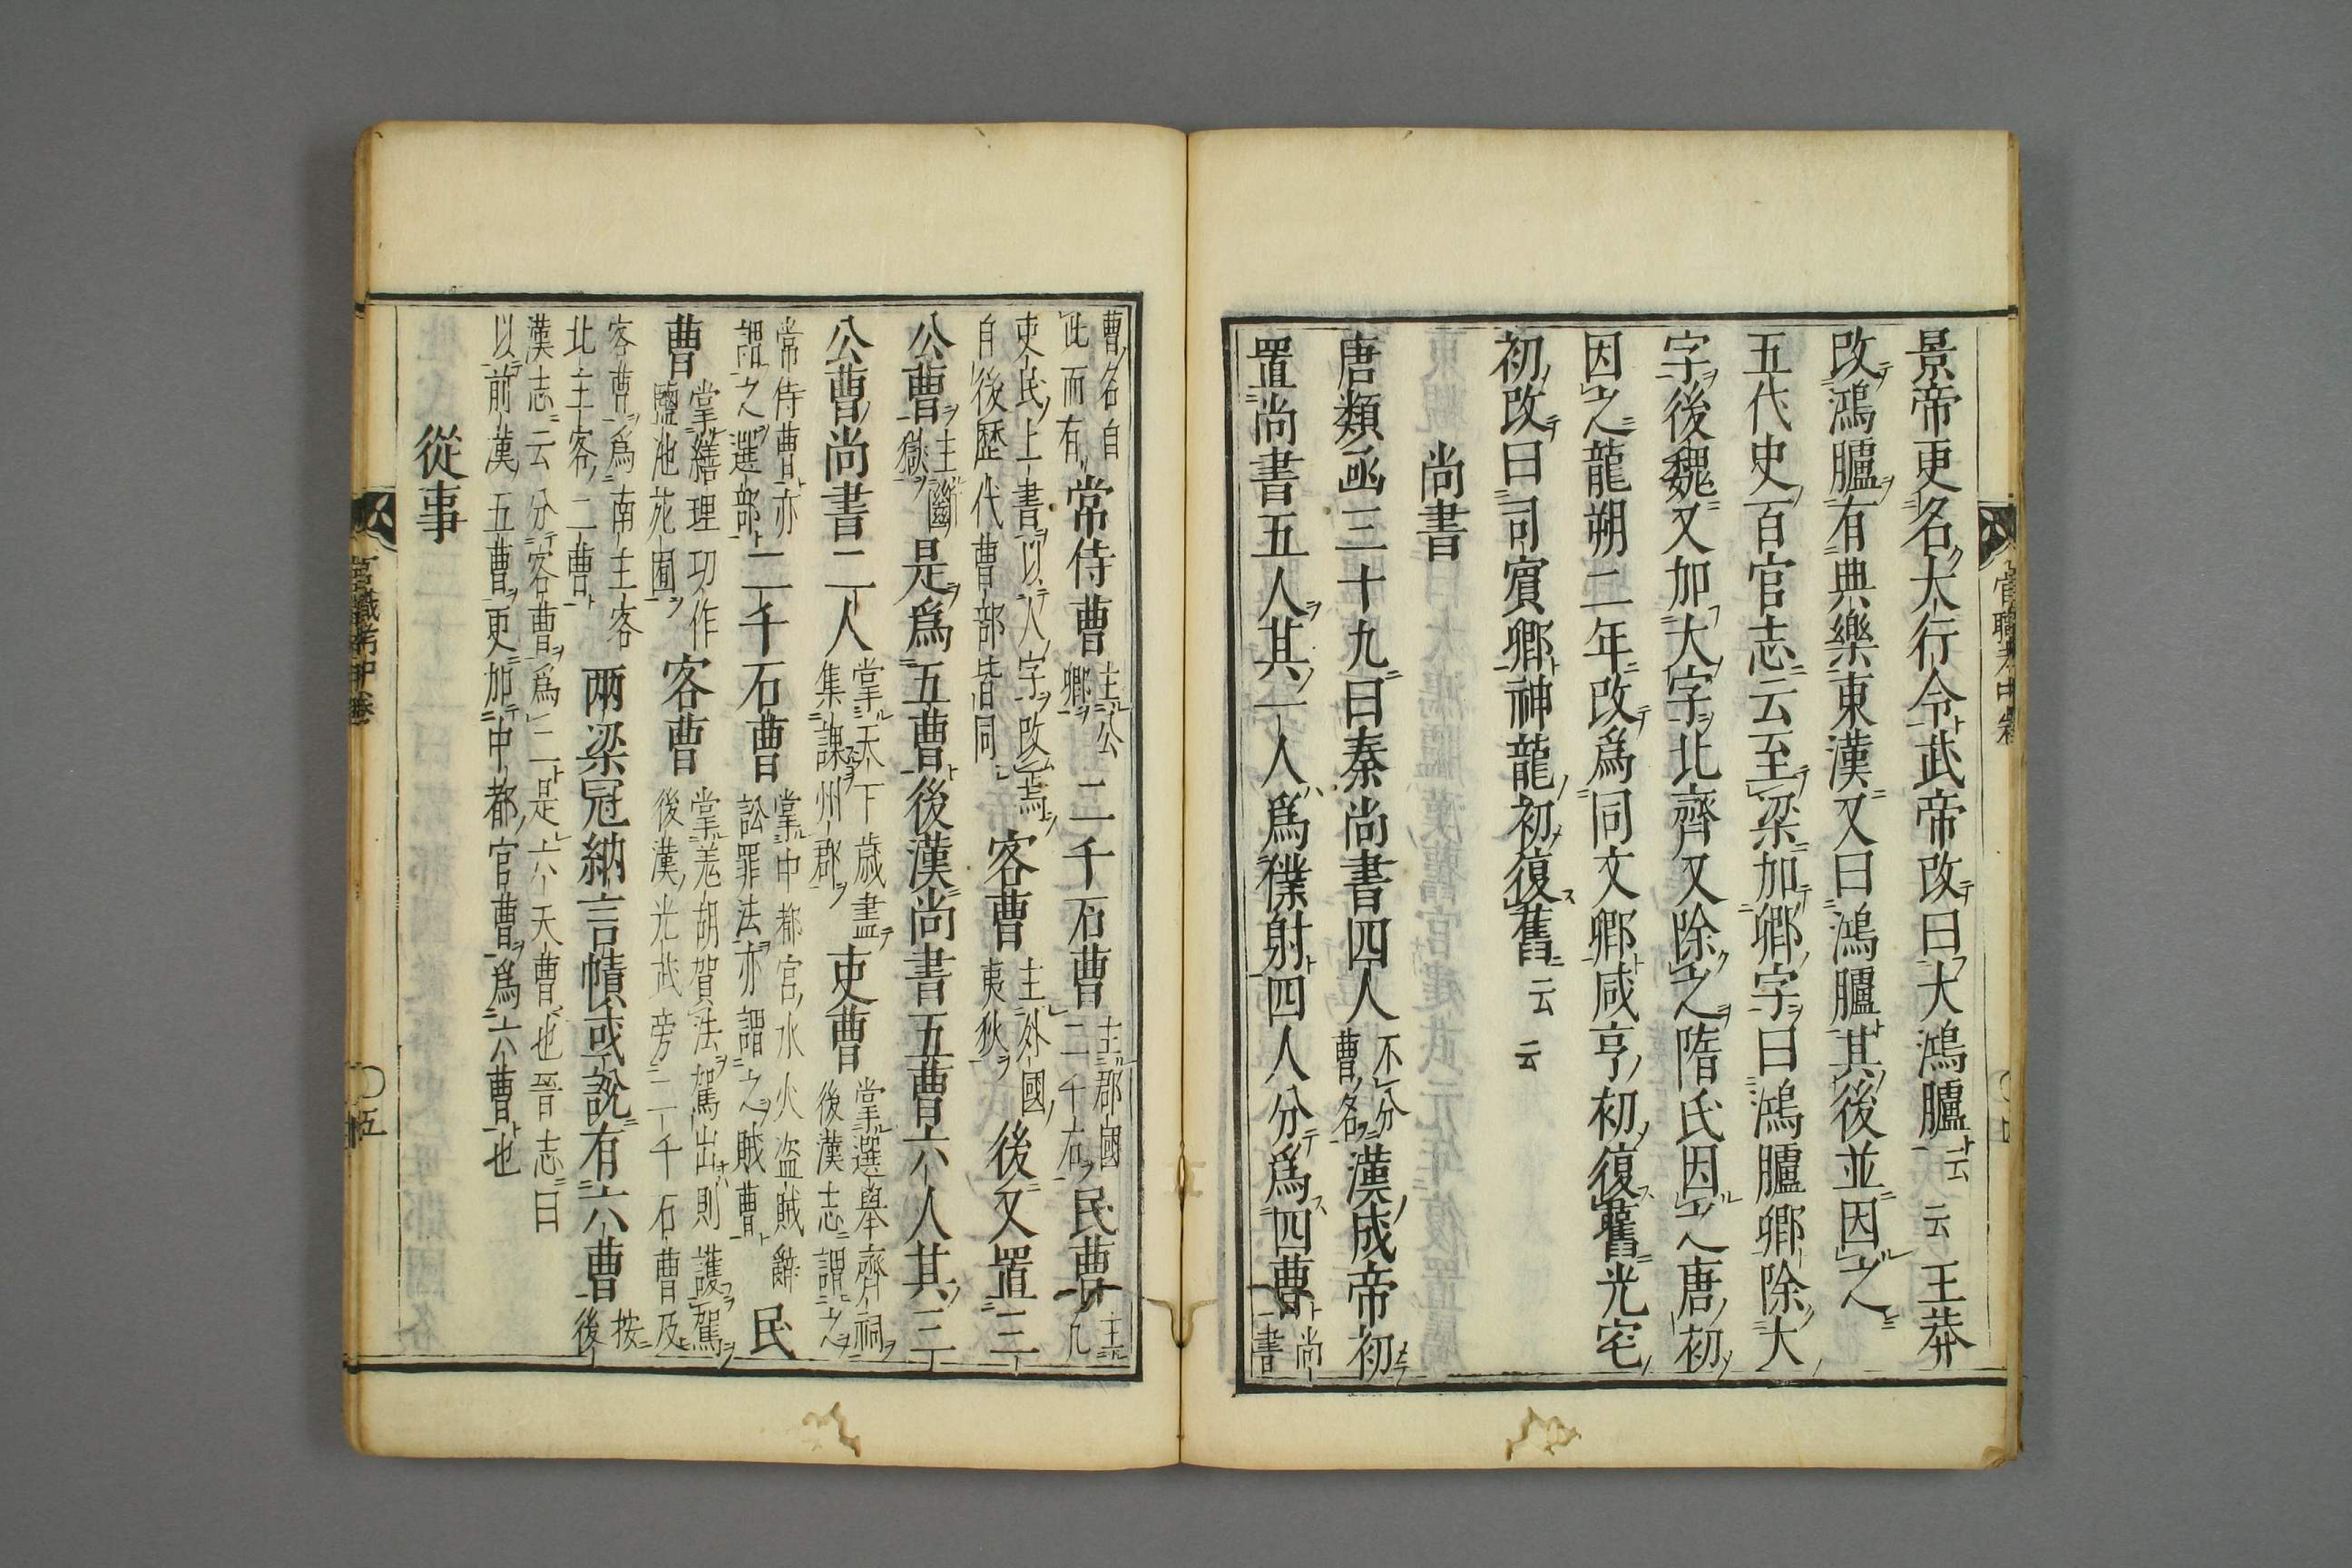 景帝更名大行令武帝改曰大鴻臚云云王莽
改鴻臚有典樂東漢又曰鴻臚其後並因之
五代史百官志云至梁加卿字曰鴻臚卿除大
字後魏又加大字北齊又除之隋氏因之唐初
因之龍朔二年改爲同文卿咸亨初復舊光宅
初改曰司賓卿神龍初復舊云云
尚書
唐類函三十九曰秦尚書四人不分曹名漢成帝初
置尚書五人其一人爲僕射四人分爲四曹尚書
曹名自此而有常侍曹主公卿二千石曹主郡國二千石民曹主凡
吏民上書以人字改焉自後歷代曹部皆同客曹主外國夷狄後又置三
公曹主斷獄是爲五曹後漢尚書五曹六人其三
公曹尚書二人掌天下歲盡集課州郡吏曹掌選舉齊祠後漢志謂之
常侍曹亦謂之選部二千石曹掌中都官水火盗賊辭訟罪法亦謂之賊曹民
曹掌繕理功作鹽池苑囿客曹掌羗胡賀法駕出則護駕後漢光武旁二千石曹及
客曹爲南主客北主客二曹兩梁冠納言幘或說有六曹按後
漢志云分客曹爲二是六天曹也晋志曰以前漢五曹更加中都官曹爲六曹也
從事
官職考中卷
五